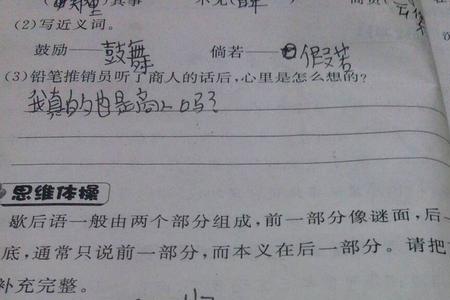 (2)写近义词。
鼓励——鼓舞 倘若——假若
(3)铅笔推销员听了商人的话后,心里是怎么想的?
我真的也是高人吗?
思维体操
歇后语一般由两个部分组成,前一部分像谜面,后一
底,通常只说前一部分,而本义在后一部分。请把
补充完整。